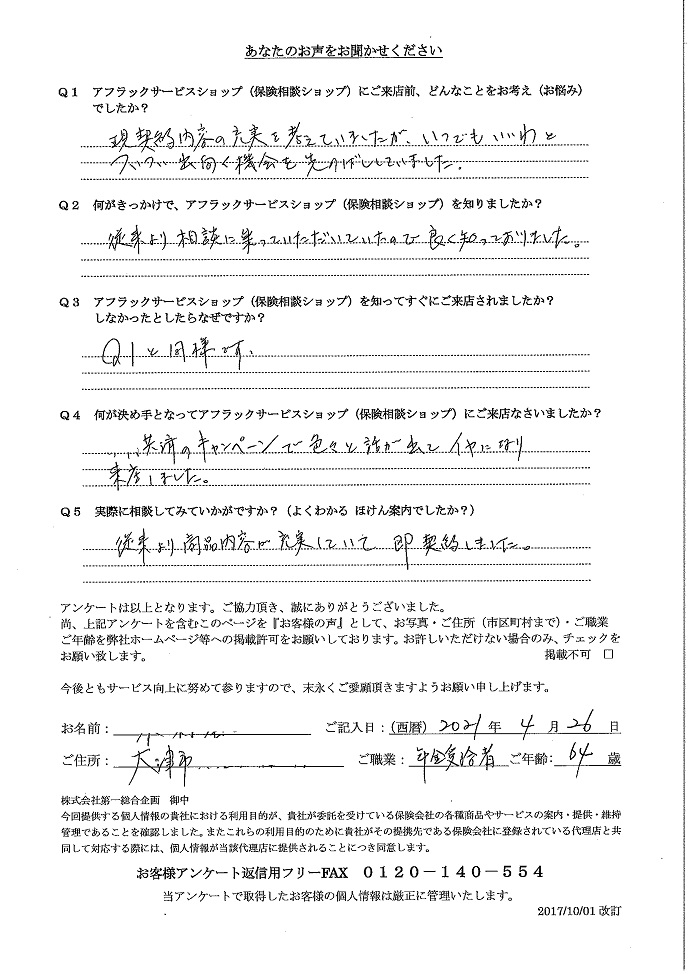 あなたのお声をお聞かせください
Q1 アフラックサービスショップ（保険相談ショップ）にご来店前、どんなことをお考え（お悩み）
でしたか？
現契約内容の充実を考えていましたが、いつでもいいわと
ついつい出向く機会を先のばししていました。
Q2 何がきっかけで、アフラックサービスショップ（保険相談ショップ）を知りましたか？
従来より相談に乗っていただいていたので良く知っておりました。
Q3 アフラックサービスショップ（保険相談ショップ）を知ってすぐにご来店されましたか？
しなかったとしたらなぜですか？
Q1と同様です。
Q4 何が決め手となってアフラックサービスショップ（保険相談ショップ）にご来店なさいましたか？
共済のキャンペーンで色々と話が出てイヤになり
来店しました。
Q5 実際に相談してみていかがですか？（よくわかる ほけん案内でしたか？）
従来より商品内容が充実していて即契約しました。
アンケートは以上となります。ご協力頂き、誠にありがとうございました。
尚、上記アンケートを含むこのページを『お客様の声』として、お写真・ご住所（市区町村まで）・ご職業
ご年齢を弊社ホームページ等への掲載許可をお願いしております。お許しいただけない場合のみ、チェックを
お願い致します。 掲載不可 □
今後ともサービス向上に努めて参りますので、末永くご愛顧頂きますようお願い申し上げます。
お名前： ご記入日：（西暦）2021年 4月 26日
ご住所：大津市 ご職業：年金受給者 ご年齢：64歳
株式会社第一総合企画 御中
今回提供する個人情報の貴社における利用目的が、貴社が委託を受けている保険会社の各種商品やサービスの案内・提供・維持
管理であることを確認しました。またこれらの利用目的のために貴社がその提携先である保険会社に登録されている代理店と共
同して対応する際には、個人情報が当該代理店に提供されることにつき同意します。
お客様アンケート返信用フリーFAX 0120－140－554
当アンケートで取得したお客様の個人情報は厳正に管理いたします。
2017/10/01 改訂